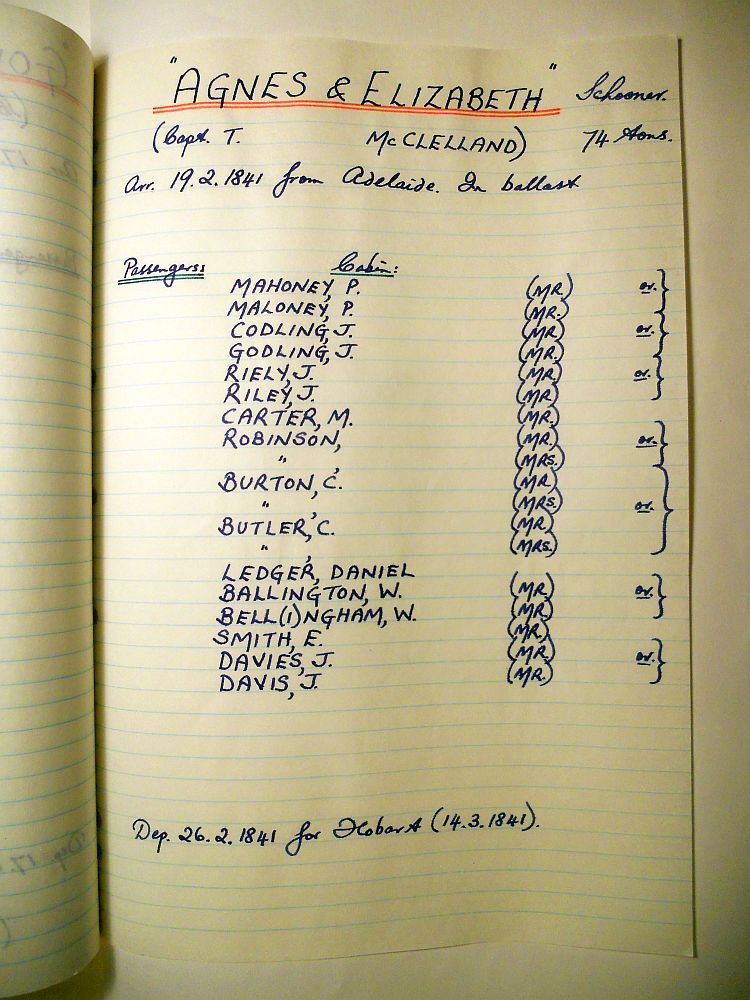 "AGNES & ELIZABETH" Schooner.
(Capt. T. McCLELLAND) 74 tons.
Arr. 19.2.1841 from Adelaide. In ballast
Passengers: Cabin:
MAHONEY, P. (MR.) or.
MALONEY, P. (MR.)
CODLING, J. (MR) or.
GODLING, J. (MR.)
RIELY, J. (MR.) or.
RILEY, J. (MR)
CARTER, M. (MR.)
ROBINSON, (MR.) or.
" , (MRS.)
BURTON, C. (MR.) or.
" , (MRS.)
BUTLER, C. (MR.)
" , (MRS.)
LEDGER, DANIEL
BALLINGTON, W. (MR.) or.
BELL(I)NGHAM, W. (MR)
SMITH, E. (MR.)
DAVIES, J. (MR.) or.
DAVIS, J. (MR.)
Dep. 26.2.1841 for Hobart (14.3.1841).